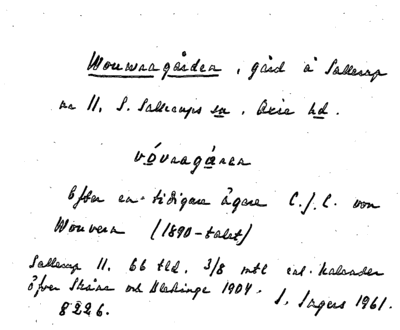 Wouwragården, gård å Sallerup
nr 11, S. Sallerups sn, Oxie hd.
vóvragáren
Efter en tidigare ägare C.J.C. von
Wouvern (1890-talet)
Sallerup 11. 66 tld. 3/8 mtl enl. Kalender
öfver Skåne och Blekinge 1904. S. Sagers 1961.
8226.